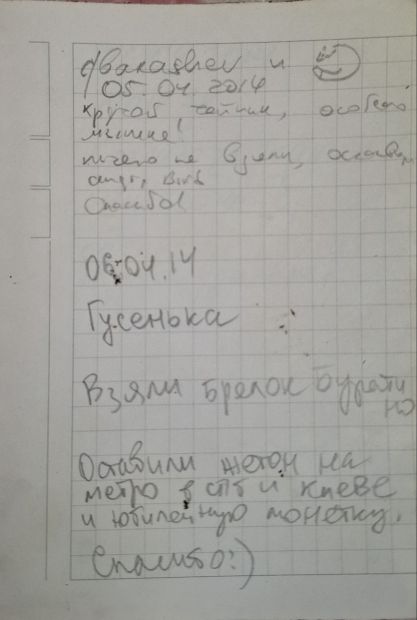 и
05.04.2014
Крутой, тайник, особенно
ничего не взяли, оставили
Спасибо!
06.04.14
Гусенька
Взяли брелок Бурати
но
Оставили жетон на
метро в спб и Киеве
и юбилейную монетку.
Спасибо:)